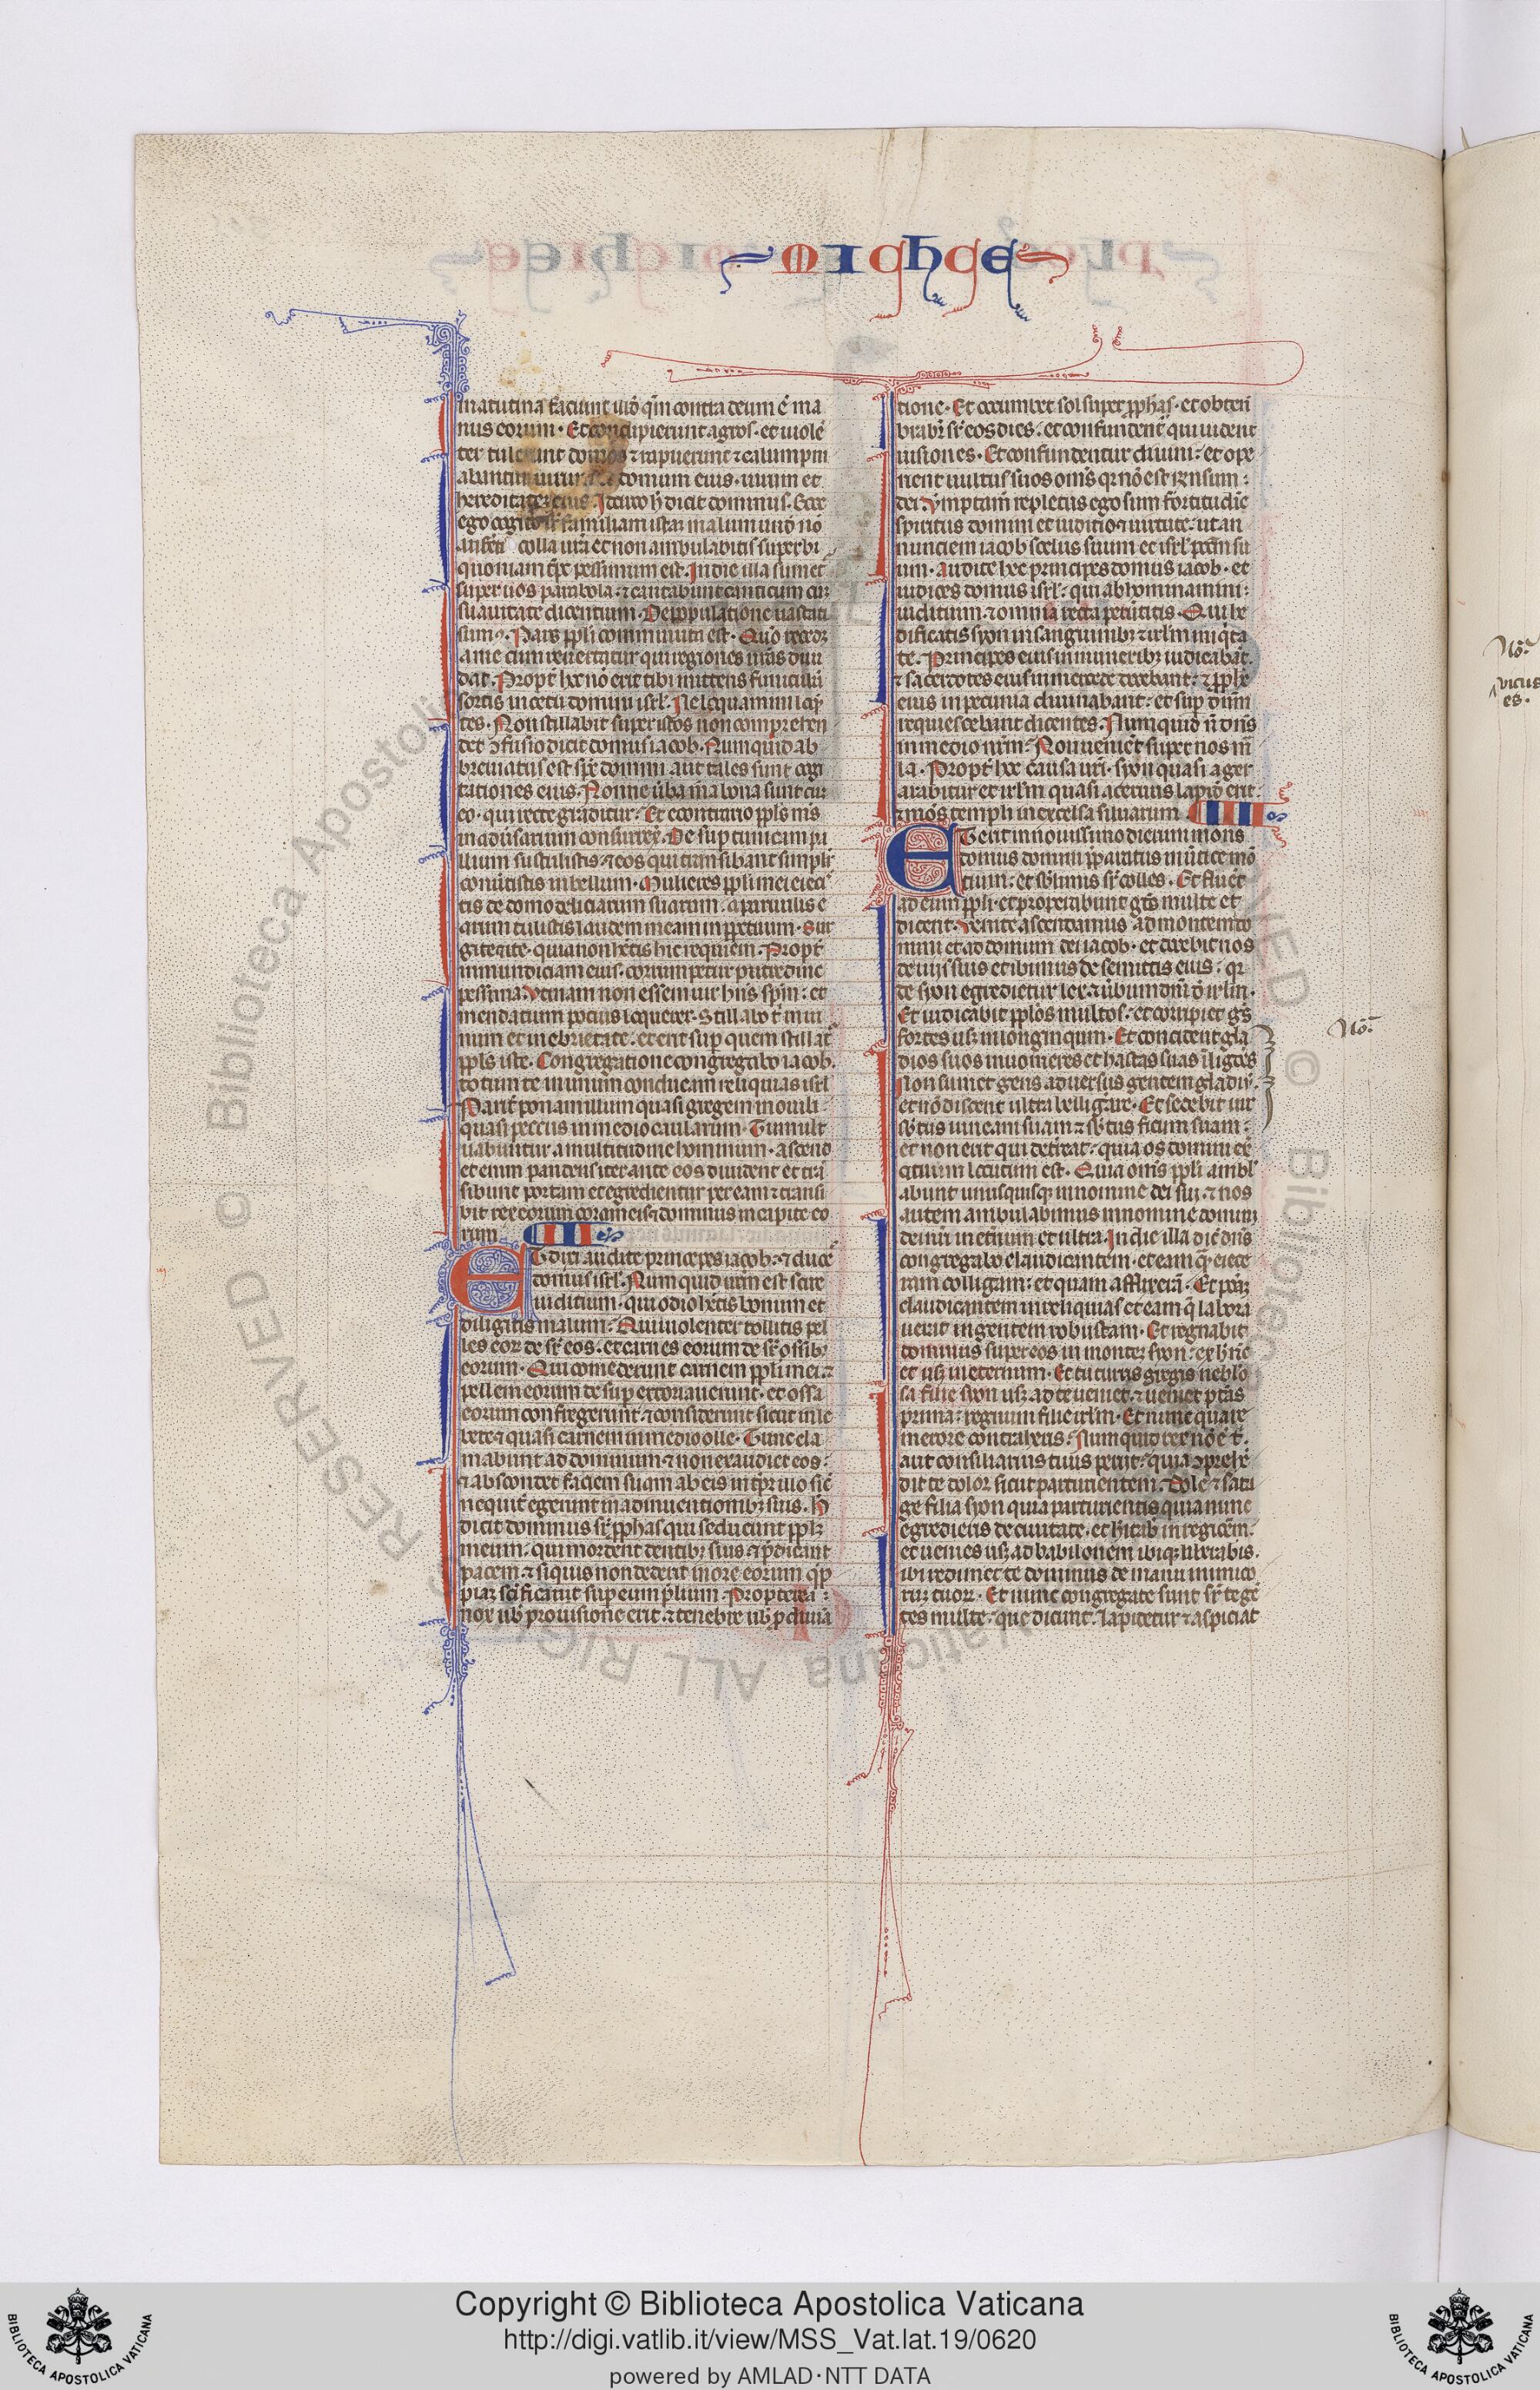 MICHEE
matutina faciunt illd̄ qm̄ contra deum ē ma
nus eorum. Et concupierunt agros. et uiolē
ter tulerunt domos ⁊ rapuerunt ⁊ calumpni
abuntur uirum domum eius. uirum et
hereditatem eius. Idcirco h̄ dicit dominus. Ecce
ego cogito sr̄ familiam istam malum unde nō
auferetis colla ur̄a et non ambulabitis superbi
quoniam tp̄s pessimum est. In die illa sumet̄
super uos parabola. ⁊ cantabitur canticum cū
suauitate dicentium. Depopulatione uastati
sumus. Pars ppl̄i commutata est. Quō recedet
a me cum reuertatur qui regiones ur̄as diui
dat. Propt̄ hoc nō erit tibi mittens funiculū
sortis in cetu domini isrl̄. Ne loquamini loquē
tes. Non stillabit super istos non comprehen
det ꝯfusio dicit domus iacob. Numquid ab
breuiatus est sp̄c domini aut tales sunt cogi
tationes eius. Nonne uerba mea bona sunt cum
eo. qui recte graditur. Et econtrario ppl̄s ms̄
in adūsarium consurrex̄. De sup tunicam pa
llium sustulistis. ⁊ eos qui transibant simplr̄
conūtistis in bellum. Mulieres ppl̄i mei eieci
tis de domo deliciarum suarum. a paruulis e
arum tulistis laudem meam in ppetuum. Sur
gite ⁊ ite. quia non hētis hic requiem. Propt̄
inmundiciam eius. corrumpetur putredine
pessima. Vtinam non essem uir hn̄s spm̄. et
mendatium pocius loquerer. Stillabo t̄ in ui
num et in ebrietate. et erit sup quem stillat̄
ppl̄s iste. Congregatione congregabo iacob.
totum te in unum conducam reliquias isrl̄
Parit̄ ponam illum quasi gregem in ouili.
quasi peccus in medio caularum. Tumult
uabuntur a multitudine hominum. ascend
et enim pandens iter ante eos diuident et trā
sibunt portam et egredientur per eam ⁊ transi
bit rex eorum coram eis. ⁊ dominus in capite eo
rum. III
Et dixi audite principes iacob. ⁊ ducē
domus isrl̄. Num quid ur̄m est scire
iuditium. qui odio hētis bonum et
diligitis malum. Qui uiolenter tollitis pel
les eor̄ de sr̄ eos. et carnes eorum de sr̄ ossib;
eorum. Qui comederunt carnem ppl̄i mei. ⁊
pellem eorum de sup excoriauerunt. et ossa
eorum confregerunt. ⁊ considerunt sicut in le
bete ⁊ quasi carnem in medio olle. Tunc cla
mabunt ad dominum ⁊ non exaudiet eos.
⁊ abscondet faciem suam ab eis in tp̄r illo sic̄
nequit̄ egerunt in adinuentionib; suis. H̄
dicit dominus sr̄ pp̄has qui seducunt ppl̄m
meum. qui mordent dentib; suis. ⁊ p̄dicant
pacem. ⁊ siquis non dederit in ore eorum qp̄
piam sc̄ificant sup eum p̄lium. Propterea
nox uob̄ pro uisione erit. ⁊ tenebre uob̄ p diuia
tione. Et occumbet sol super pp̄has. et obten
brabit̄ sr̄ eos dies. et confundent̄ qui uident
uisiones. Et confundentur diuini. et ope
rient uultus suos om̄s qr̄ nō est rensum
dei. Vmptam̄ repletus ego sum fortitudīe
spiritus domini et iuditio ⁊ uirtute. ut an
nunciem iacob scelus suum et isrl̄ pccm̄ su
um. Audite hec principes domus iacob. et
iudices domus isrl̄. qui abhominamini
iuditium. ⁊ omnia recta peruertitis. Qui he
dificatis syon in sanguinib; ⁊ irl̄m iniq̄ta
te. Principes eius in muneribus iudicabāt.
⁊ sacerdotes eius in mercede docebant. ⁊ pp̄he
eius in pecunia diuinabant. et sup dn̄m
requiescebant dicentes. Numquid n̄ dn̄s
in medio nr̄m. Non uenient super nos m̄
la. Propt̄ hoc causa ur̄i. syon quasi ager
arabitur et irl̄m quasi aceruus lapid̄ erit.
⁊ mōs templi in excelsa siluarum. IIII
Et erit in nouissimo dierum mons
domus domini pparatus in ūtice mō
tium. et sb̄limis sr̄ colles. Et fluēt
ad eum ppl̄i. et properabunt gēts multe et
dicent. Venite ascendamus ad montem do
mini et ad domum dei iacob. et docebit nos
de uiis suis et ibimus de semitis eius. qr̄
de syon egredietur lex. ⁊ ūbum dn̄i d̄ irl̄m.
Et iudicabit ppl̄os multos. et corripiet gēs
fortes usq; in longinqum. Et concident gla
dios suos in uomeres et hastas suas in ligōes
Non sumet gens aduersus gentem gladiū.
et nō discent ultra belligare. Et sedebit uir
sb̄tus uineam suam ⁊ sb̄tus ficum suam.
et non erit qui deterreat. quia os domini ex̄
cituum locutum est. Quia om̄s ppl̄i ambl̄
abunt unusquisq; in nomine dei sui. ⁊ nos
autem ambulabimus in nomine domini
dei nr̄i in et̄num et ultra. In die illa dic̄ dn̄s
congregabo claudicantem. et eam quā eiece
ram colligam. et quam afflixeram. Et ponā
claudicantem in reliquias et eam q̄ labora
uerit in gentem robustam. Et regnabit
dominus super eos in monte syon. ex hoc
et usq; in eternum. Et tu turris gregis neblo
sa filie syon usq; ad te ueniet. ⁊ ueniet ptās
prima. regnum filie irl̄m. Et nunc quare
merore contraheris. Numquid rex nō ē t̄.
aut consiliarius tuus periit. quia ꝯprehē
dit te dolor sicut parturientem. Dole ⁊ sata
ge filia syon quia parturientis quia nunc
egredieris de ciuitate. et hītab̄ in regione.
et uenies usq; ad babilonem ibiq; liberabis.
ibi redimet te dominus de manu inimico
rum tuor̄. Et nunc congregate sunt sr̄ te gē
tes multe. que dicunt. lapidetur ⁊ aspiciat
Nō.
Nō.
uicus
es.
Copyright © Biblioteca Apostolica Vaticana
http://digi.vatlib.it/view/MSS_Vat.lat.19/0620
powered by AMLAD·NTT DATA
BIBLIOTECA APOSTOLICA VATICANA
BIBLIOTECA APOSTOLICA VATICANA